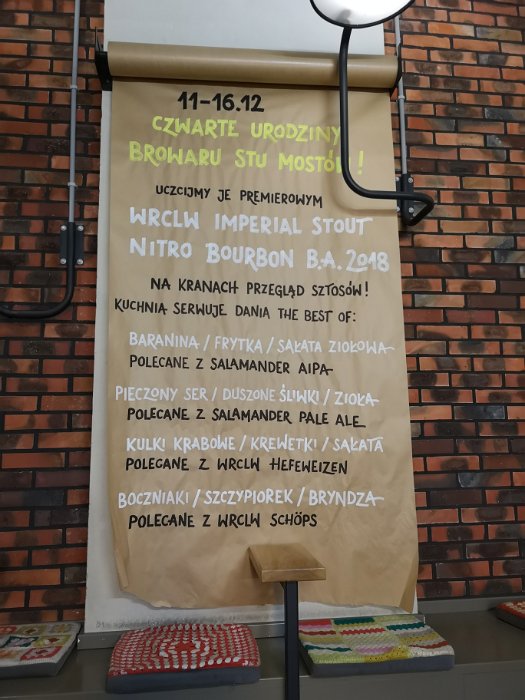 11-16.12
CZWARTE URODZINY
BROWARU STU MOSTÓW!
UCZCIJMY JE PREMIEROWYM
WRCLW IMPERIAL STOUT
NITRO BOURBON B.A. 2018
NA KRANACH PRZEGLĄD SZTOSÓW!
KUCHNIA SERWUJE DANIA THE BEST OF:
BARANINA / FRYTKA / SAŁATA ZIOŁOWA
POLECANE Z SALAMANDER AIPA
PIECZONY SER / DUSZONE ŚLIWKI / ZIOŁA
POLECANE Z SALAMANDER PALE ALE
KULKI KRABOWE / KREWETKI / SAŁATA
POLECANE Z WRCLW HEFEWEIZEN
BOCZNIAKI / SZCZYPIOREK / BRYNDZA
POLECANE Z WRCLW SCHÖPS